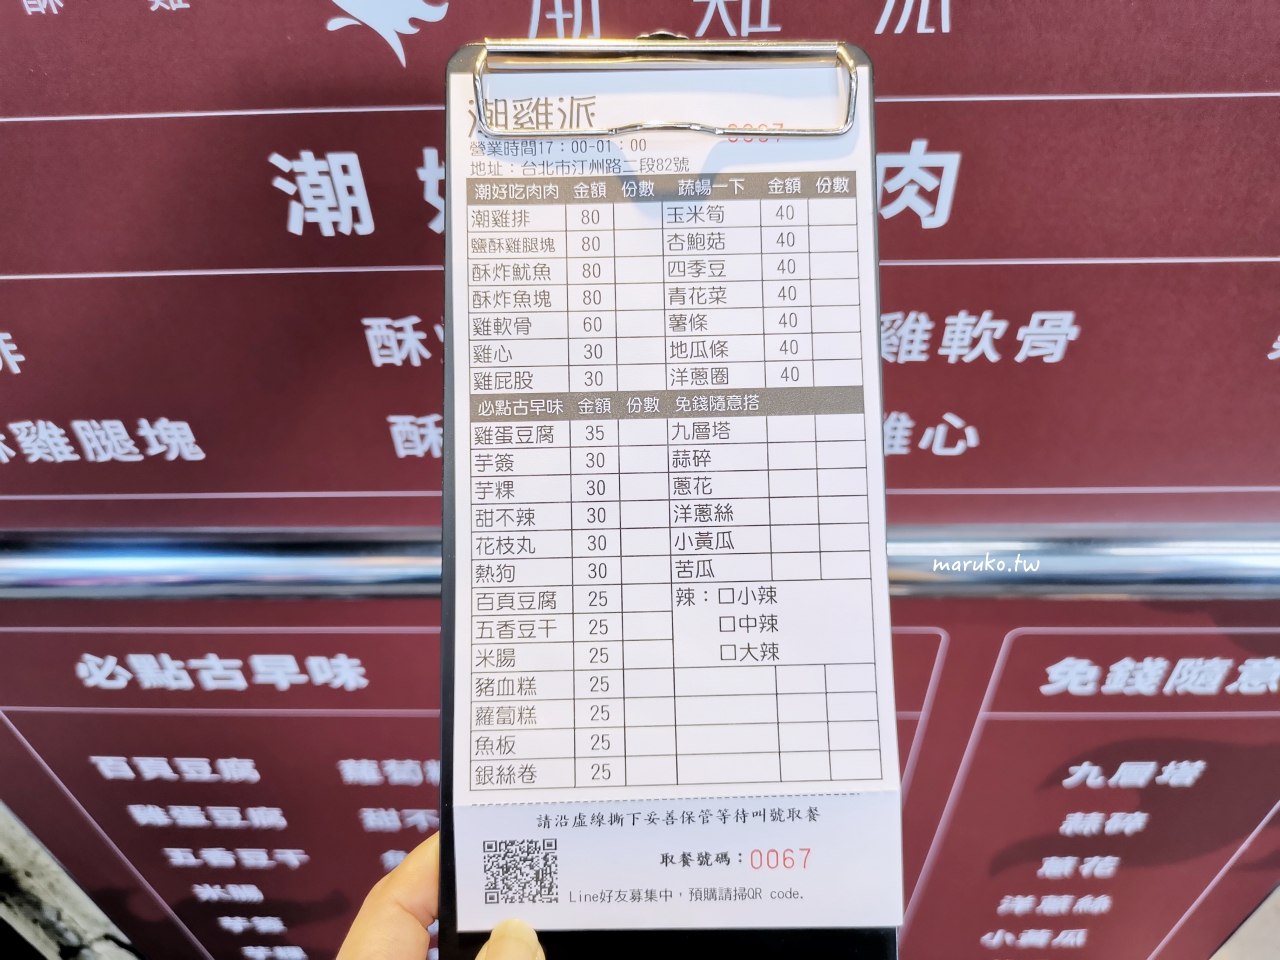 潮雞派
0067
營業時間17：00-01：00
地址：台北市汀州路二段82號
潮好吃肉肉 金額 份數 蔬暢一下 金額 份數
潮雞排 80 玉米筍 40
鹽酥雞腿塊 80 杏鮑菇 40
酥炸魷魚 80 四季豆 40
酥炸魚塊 80 青花菜 40
雞軟骨 60 薯條 40
雞心 30 地瓜條 40
雞屁股 30 洋蔥圈 40
必點古早味 金額 份數 免錢隨意搭
雞蛋豆腐 35 九層塔
芋簽 30 蒜碎
芋粿 30 蔥花
甜不辣 30 洋蔥絲
花枝丸 30 小黃瓜
熱狗 30 苦瓜
百頁豆腐 25 辣：□小辣
五香豆干 25 □中辣
米腸 25 □大辣
豬血糕 25
蘿蔔糕 25
魚板 25
銀絲卷 25
請沿虛線撕下妥善保管等待叫號取餐
取餐號碼：0067
Line好友募集中，預購請掃QR code.
潮
肉
酥
雞軟骨
雞腿塊
酥
雞心
maruko.tw
必點古早味
免錢隨意
百頁豆腐
蘿蔔
九層塔
雞蛋豆腐
甜不
蒜碎
五香豆干
蔥花
米腸
洋蔥絲
小黃瓜